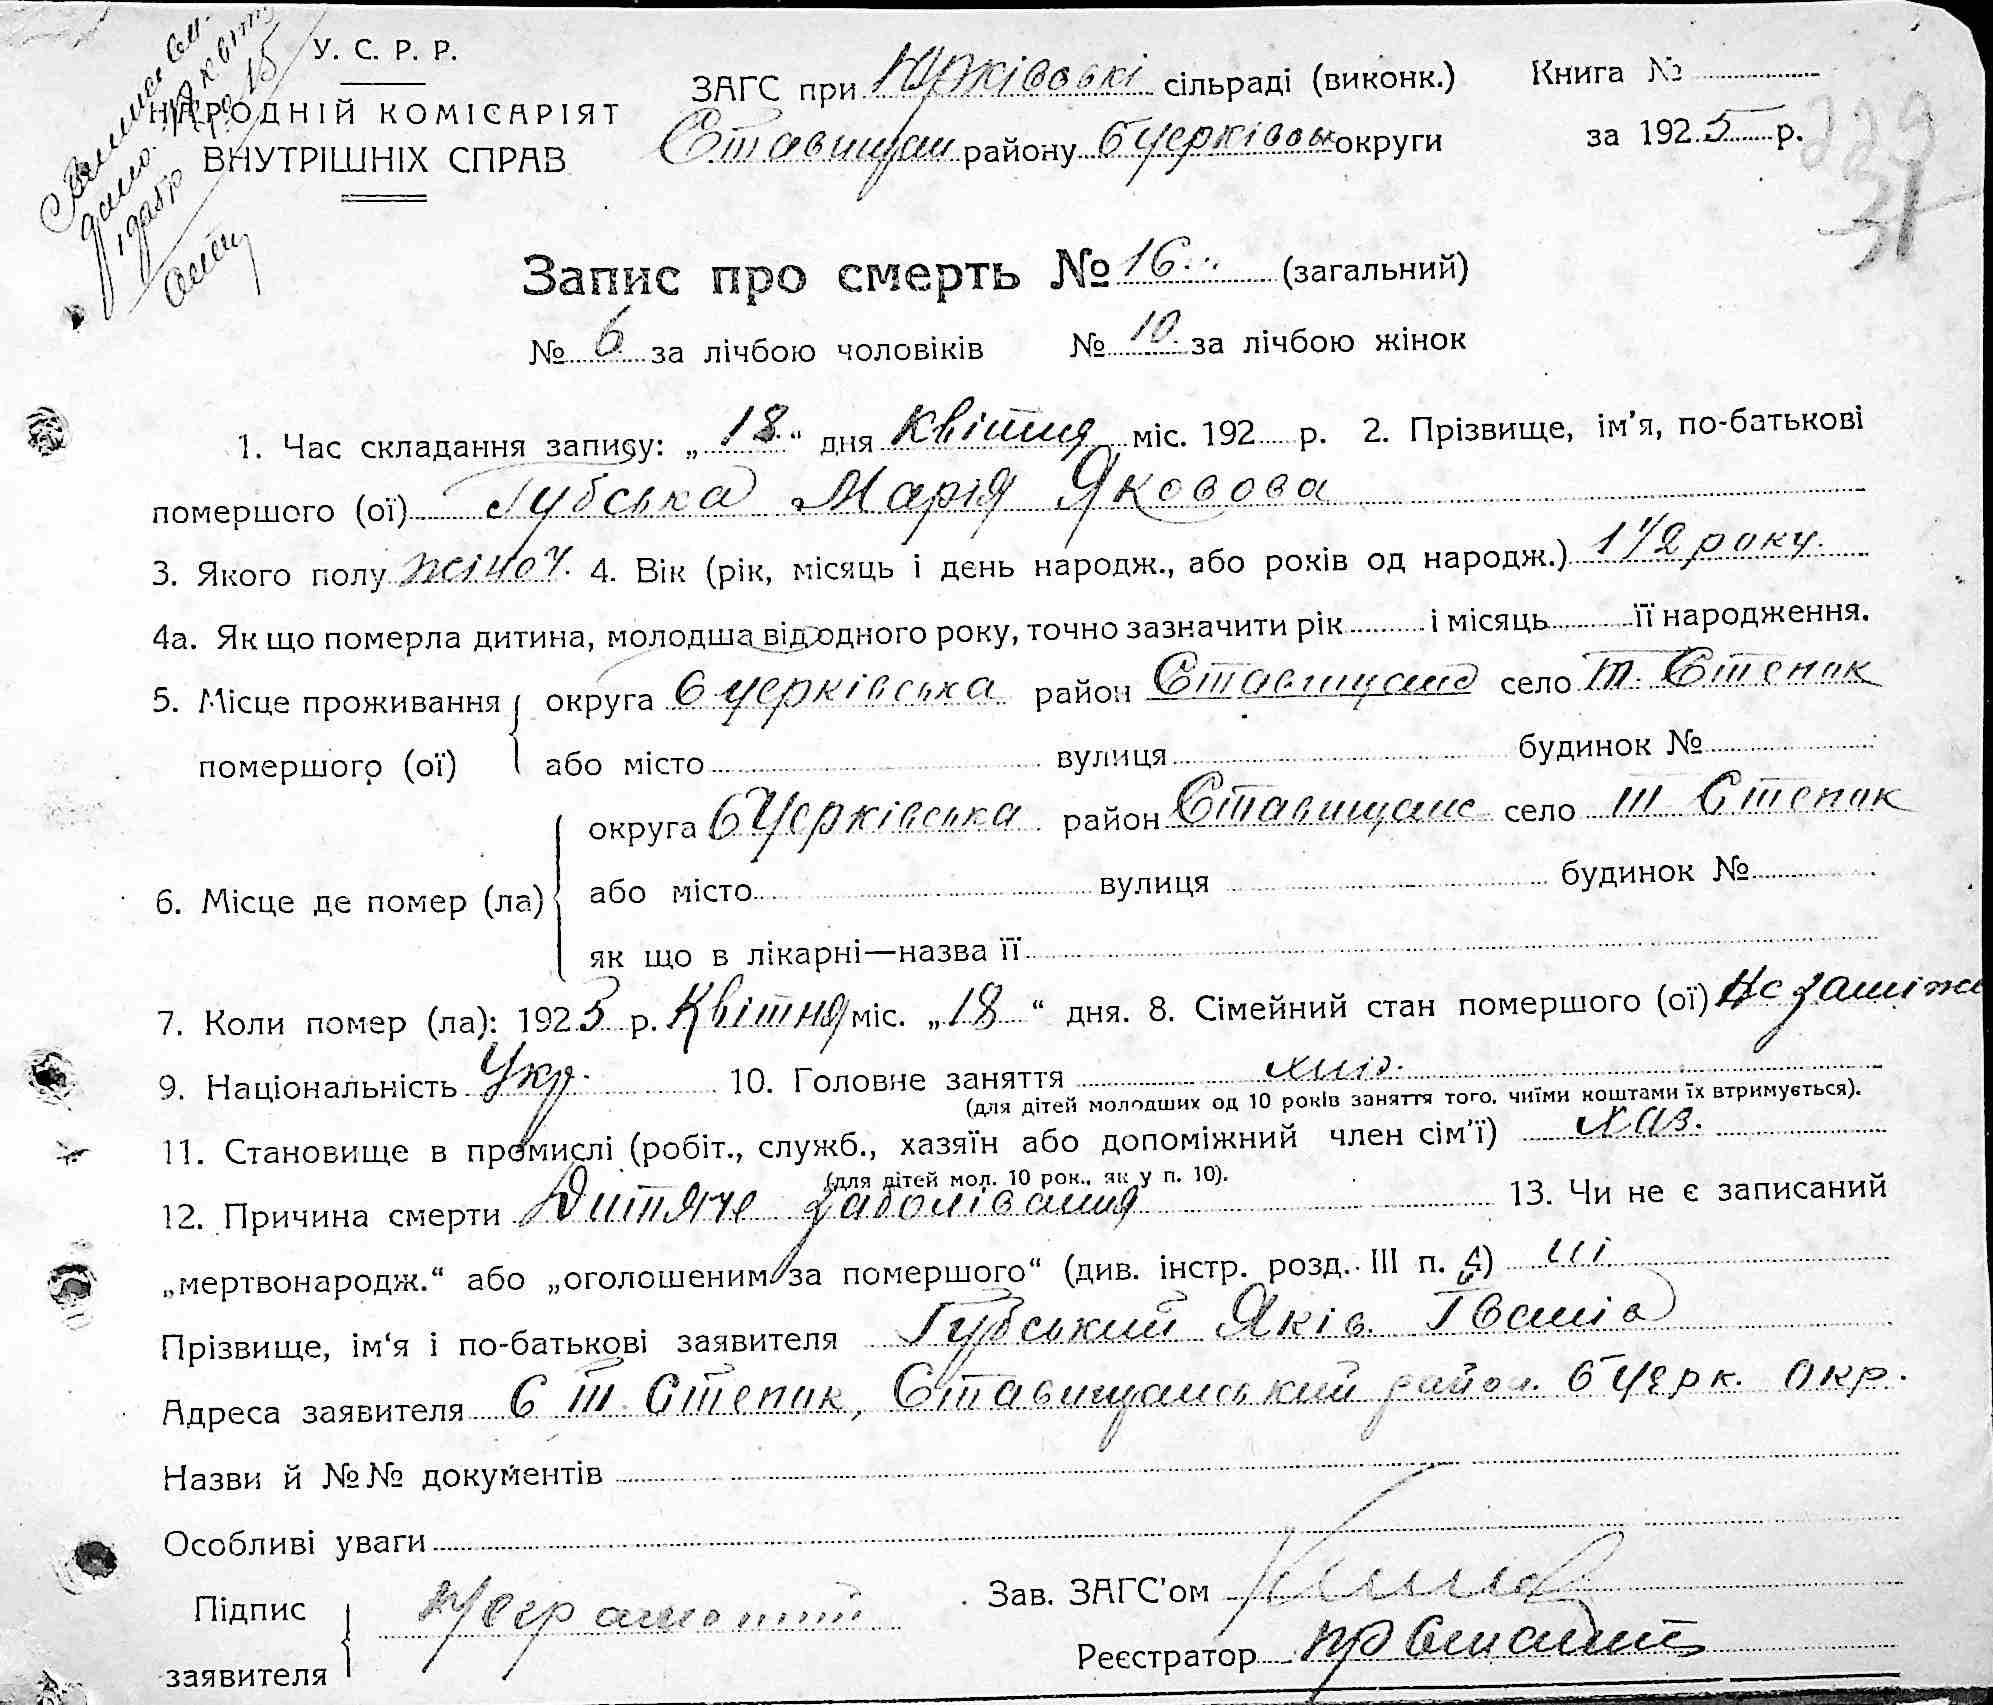 У. С. Р. Р.
НАРОДНІЙ КОМІСАРІЯТ
ВНУТРІШНІХ СПРАВ
ЗАГС при Юрківські сільраді (виконк.) Книга №
Ставищан району бЦерківськ округи за 1925 р.
31
Запис про смерть № 16 (загальний)
№ 6 за лічбою чоловіків № 10 за лічбою жінок
1. Час складання запису: „18“ дня Квітня міс. 192 р. 2. Прізвище, ім'я, по-батькові
помершого (ої) Губська Марія Яковова
3. Якого полу жіноч. 4. Вік (рік, місяць і день народж., або років од народж.) 1 1/2 року.
4а. Як що померла дитина, молодша від одного року, точно зазначити рік і місяць її народження.
5. Місце проживання округа бЦерківська район Ставищанс село т. Степок
помершого (ої) або місто вулиця будинок №
округа бЦерківська район Ставищанс село т Степок
6. Місце де помер (ла) або місто вулиця будинок №
як що в лікарні—назва її
7. Коли помер (ла): 1925 р. Квітня міс. „18“ дня. 8. Сімейний стан помершого (ої) Не заміжн
9. Національність Укр. 10. Головне заняття хліб.
(для дітей молодших од 10 років заняття того, чиїми коштами їх втримується).
11. Становище в промислі (робіт., служб., хазяїн або допоміжний член сім'ї) хаз.
(для дітей мол. 10 рок., як у п. 10).
12. Причина смерти Дитяче заболівання 13. Чи не є записаний
„мертвонародж.“ або „оголошеним за помершого“ (див. інстр. розд. III п. 4) ні
Прізвище, ім'я і по-батькові заявителя Губський Яків Іванів
Адреса заявителя С т. Степок, Ставищанський район. бЦерк. окр.
Назви й №№ документів
Особливі уваги
Підпис заявителя Неграмотний
Зав. ЗАГС'ом
Реєстратор